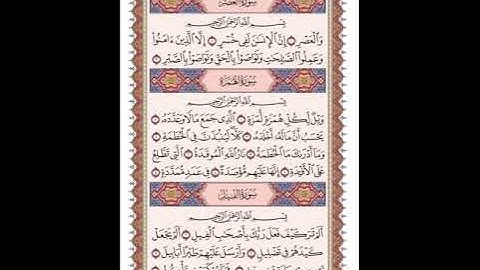 سُورَةُ العَصْرِ
بِسْمِ اللَّهِ الرَّحْمَٰنِ الرَّحِيمِ
وَالْعَصْرِ ۝ إِنَّ الْإِنسَٰنَ لَفِى خُسْرٍ ۝ إِلَّا الَّذِينَ ءَامَنُوا
وَعَمِلُوا الصَّٰلِحَٰتِ وَتَوَاصَوْا بِالْحَقِّ وَتَوَاصَوْا بِالصَّبْرِ ۝
سُورَةُ الهُمَزَةِ
بِسْمِ اللَّهِ الرَّحْمَٰنِ الرَّحِيمِ
وَيْلٌ لِّكُلِّ هُمَزَةٍ لُّمَزَةٍ ۝ الَّذِى جَمَعَ مَالًا وَعَدَّدَهُ ۝
يَحْسَبُ أَنَّ مَالَهُ أَخْلَدَهُ ۝ كَلَّا لَيُنبَذَنَّ فِى الْحُطَمَةِ ۝
وَمَا أَدْرَىٰكَ مَا الْحُطَمَةُ ۝ نَارُ اللَّهِ الْمُوقَدَةُ ۝ الَّتِى تَطَّلِعُ
عَلَى الْأَفْـِٔدَةِ ۝ إِنَّهَا عَلَيْهِم مُّؤْصَدَةٌ ۝ فِى عَمَدٍ مُّمَدَّدَةٍ ۝
سُورَةُ الفِيلِ
بِسْمِ اللَّهِ الرَّحْمَٰنِ الرَّحِيمِ
أَلَمْ تَرَ كَيْفَ فَعَلَ رَبُّكَ بِأَصْحَٰبِ الْفِيلِ ۝ أَلَمْ يَجْعَلْ
كَيْدَهُمْ فِى تَضْلِيلٍ ۝ وَأَرْسَلَ عَلَيْهِمْ طَيْرًا أَبَابِيلَ ۝